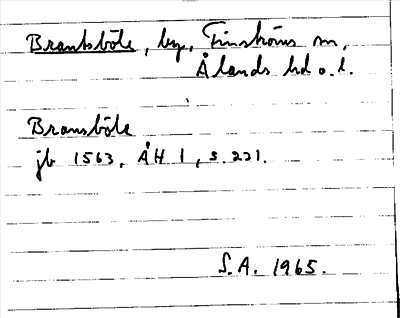 Brantsböle, by, Finströms sn,
Ålands hd o. l.
Bransböle
jb 1563, ÅH 1, s. 221.
S.A. 1965.